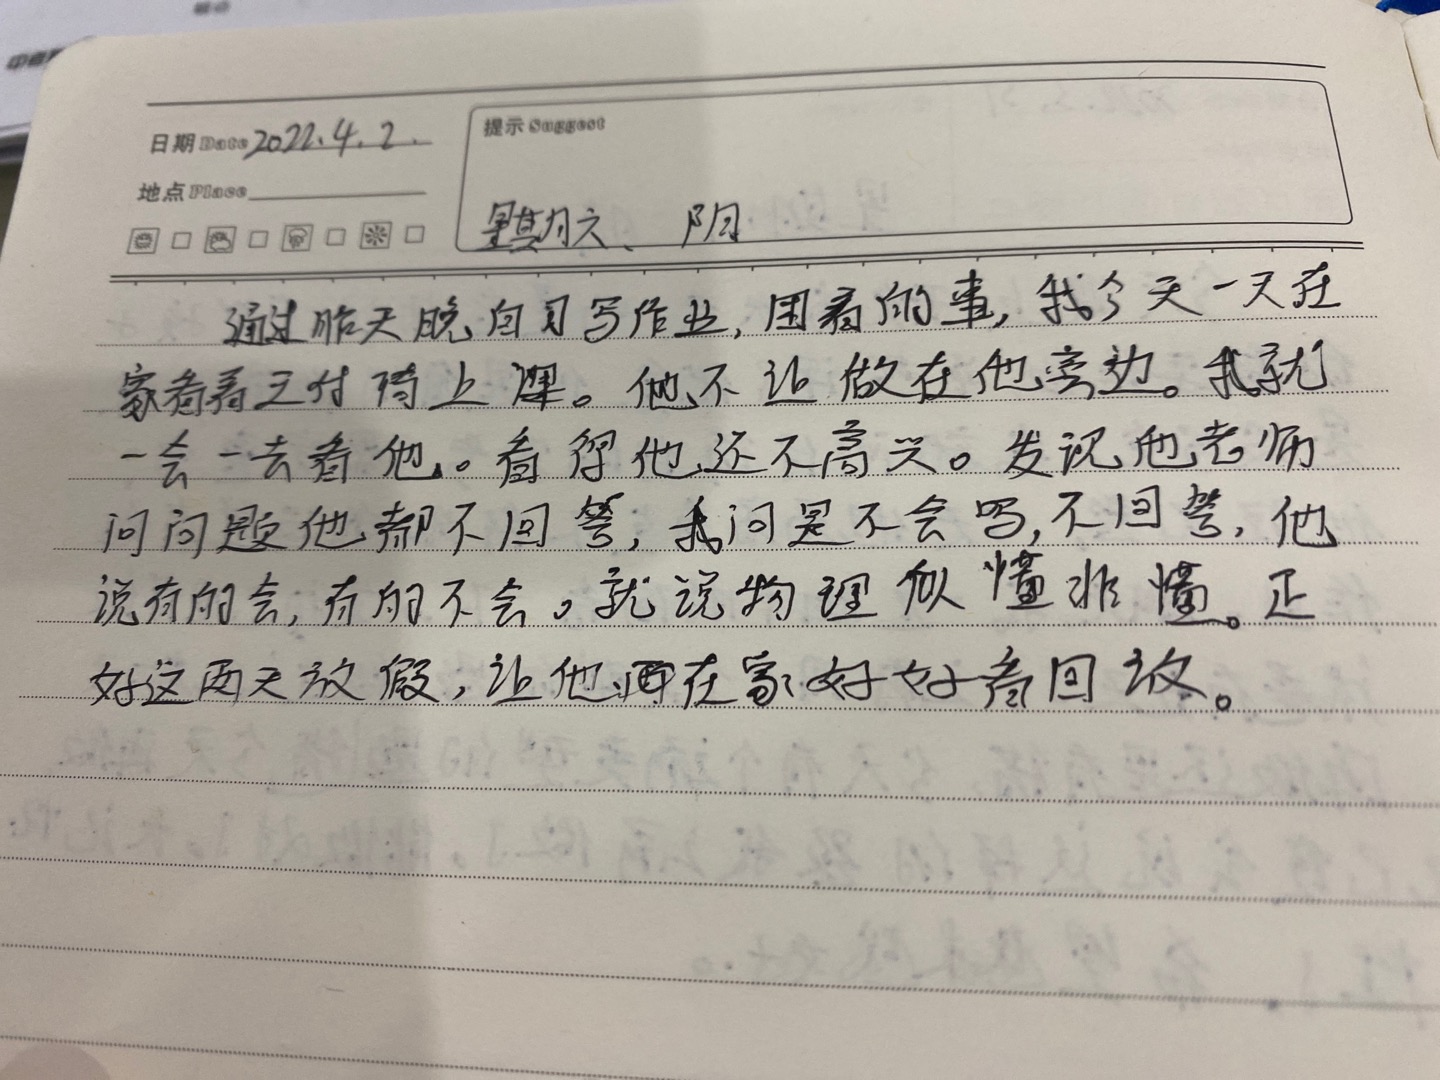 日期 Date 2022.4.2.
提示 Suggest
地点 Place
星期六、阴
通过昨天晚自习写作业,困着的事,我今天一天在
家看着王付琦上课。他不让做在他旁边。我就
一会一去看他。看得他还不高兴。发现他老师
问问题他都不回答,我问是不会吗,不回答,他
说有的会,有的不会。就说物理似懂非懂。正
好这两天放假,让他再在家好好看回放。